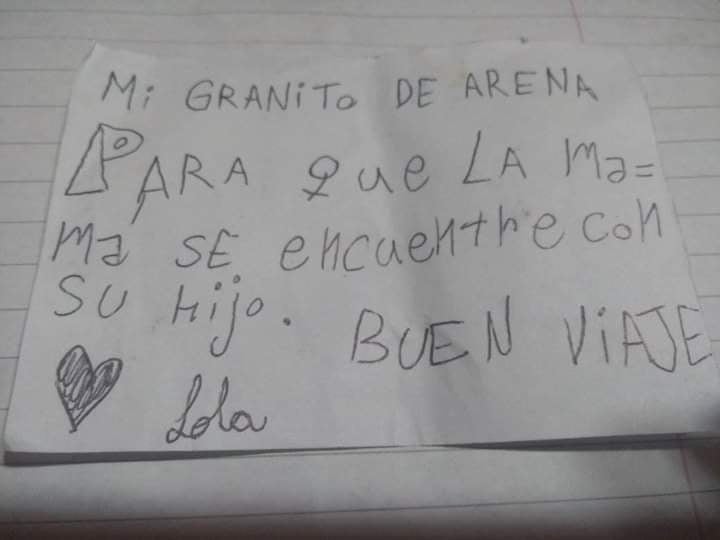 Mi GRANiTo DE ARENA
PARA que LA Ma=
Má SE encuentre con
SU Hijo. BUEN ViAJE
Lola